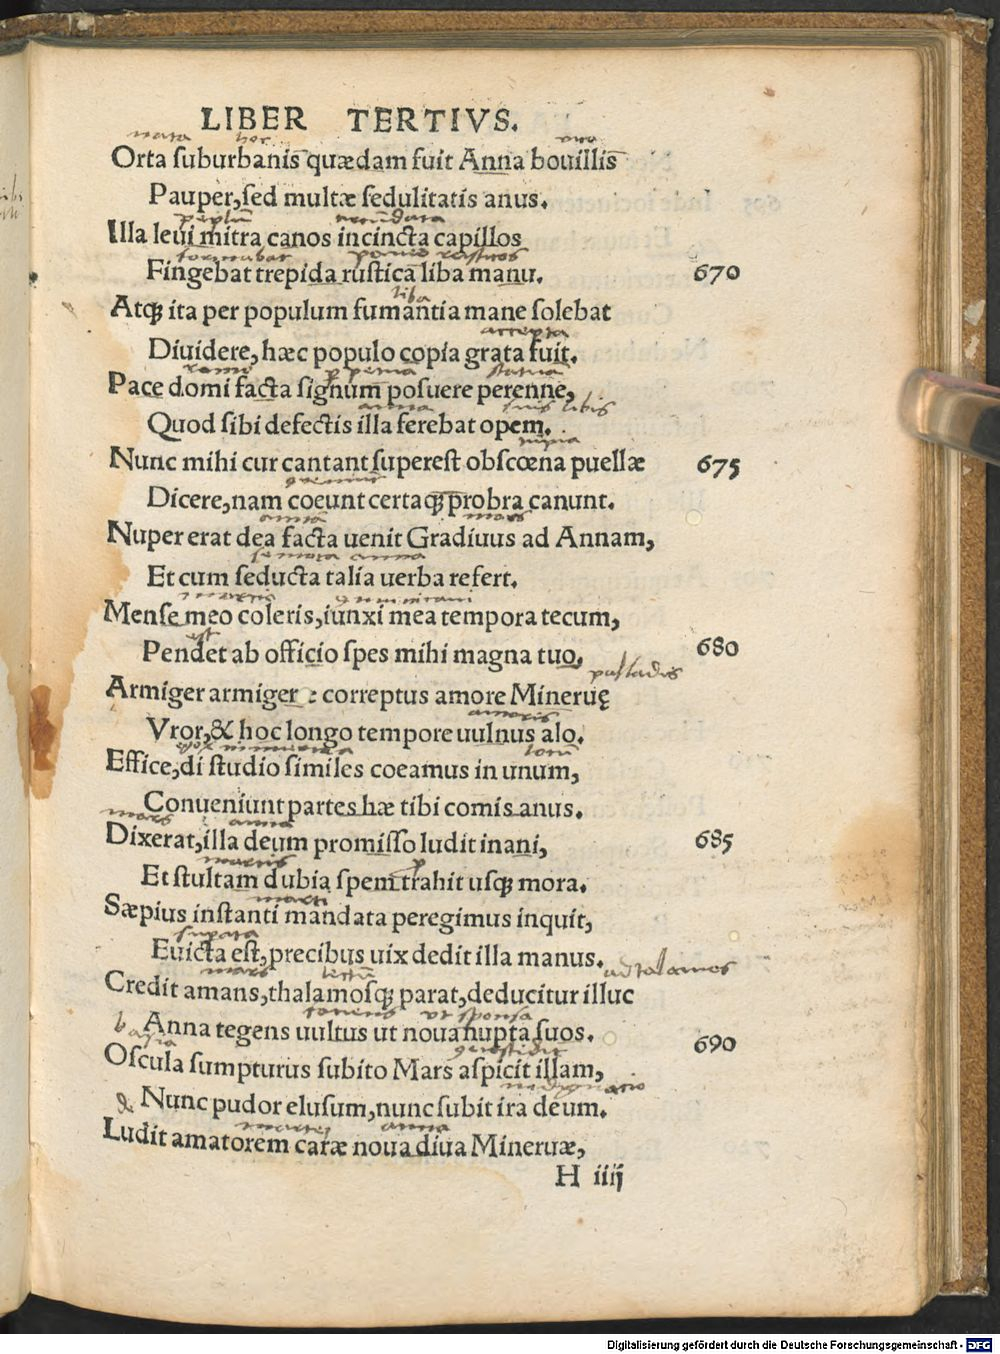 LIBER TERTIVS.
nata hoc
Orta suburbanis quædam fuit Anna bouillis
Pauper, sed multæ sedulitatis anus.
Illa leui mitra canos incincta capillos
formabat
Fingebat trepida rustica liba manu. 670
liba
Atqꝫ ita per populum fumantia mane solebat
accepta
Diuidere, hæc populo copia grata fuit.
statuā
Pace domi facta signum posuere perenne,
anna suis libis
Quod sibi defectis illa ferebat opem.
Nunc mihi cur cantant superest obscœna puellæ 675
Dicere, nam coeunt certaqꝫ probra canunt.
mars
Nuper erat dea facta uenit Gradiuus ad Annam,
semota anna
Et cum seducta talia uerba refert.
Mense meo coleris, iunxi mea tempora tecum,
est
Pendet ab officio spes mihi magna tuo. 680
palladis
Armiger armiger e correptus amore Mineruę
amoris
Vror, & hoc longo tempore uulnus alo.
Effice, di studio similes coeamus in unum,
Conueniunt partes hæ tibi comis anus.
mars anna
Dixerat, illa deum promisso ludit inani, 685
martis
Et stultam dubia spem trahit usqꝫ mora.
marti
Sæpius instanti mandata peregimus inquit,
Euicta est, precibus uix dedit illa manus.
mars lectū ad talamos
Credit amans, thalamosqꝫ parat, deducitur illuc
ut sponsa
Anna tegens uultus ut noua nupta suos. 690
basia
Oscula sumpturus subito Mars aspicit illam,
& Nunc pudor elusum, nunc subit ira deum.
anna
Ludit amatorem caræ noua diua Mineruæ,
H iiij
Digitalisierung gefördert durch die Deutsche Forschungsgemeinschaft - DFG